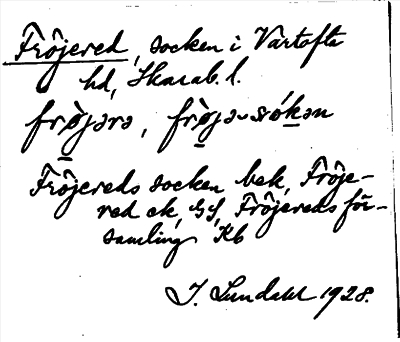 Fröjered, socken i Vartofta
hd, Skarab. l.
frö̀jərə, frö̀jə-sókən
Fröjereds socken bek, Fröje-
red ek, GS, Fröjereds för-
samling Kb
J. Lundahl 1928.